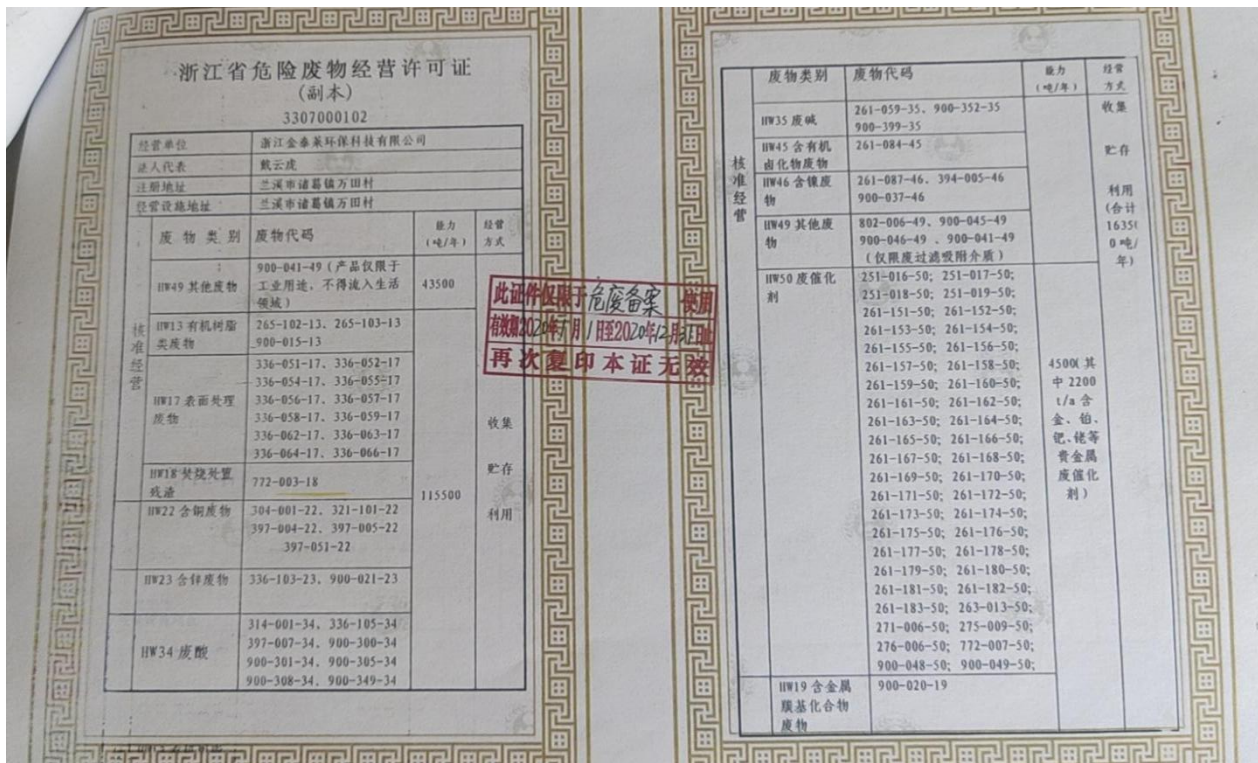 浙江省危险废物经营许可证
(副本)
3307000102
经营单位 浙江金泰莱环保科技有限公司
法人代表 戴云虎
注册地址 兰溪市诸葛镇万田村
经营设施地址 兰溪市诸葛镇万田村
核准经营
废物类别 废物代码 能力(吨/年) 经营方式
HW49 其他废物
900-041-49(产品仅限于
工业用途,不得流入生活
领域)
43500
HW13 有机树脂
类废物
265-102-13、265-103-13
900-015-13
HW17 表面处理
废物
336-051-17、336-052-17
336-054-17、336-055-17
336-056-17、336-057-17
336-058-17、336-059-17
336-062-17、336-063-17
336-064-17、336-066-17
HW18 焚烧处置
残渣
772-003-18
HW22 含铜废物
304-001-22、321-101-22
397-004-22、397-005-22
397-051-22
HW23 含锌废物 336-103-23、900-021-23
HW34 废酸
314-001-34、336-105-34
397-007-34、900-300-34
900-301-34、900-305-34
900-308-34、900-349-34
115500
收集
贮存
利用
此证件仅限于危废备案使用
有效期2020年 月1日至2020年12月31日止
再次复印本证无效
核准经营
废物类别 废物代码 能力(吨/年) 经营方式
HW35 废碱
261-059-35、900-352-35
900-399-35
HW45 含有机
卤化物废物
261-084-45
HW46 含镍废
物
261-087-46、394-005-46
900-037-46
HW49 其他废
物
802-006-49、900-045-49
900-046-49 、900-041-49
(仅限废过滤吸附介质)
HW50 废催化
剂
251-016-50; 251-017-50;
251-018-50; 251-019-50;
261-151-50; 261-152-50;
261-153-50; 261-154-50;
261-155-50; 261-156-50;
261-157-50; 261-158-50;
261-159-50; 261-160-50;
261-161-50; 261-162-50;
261-163-50; 261-164-50;
261-165-50; 261-166-50;
261-167-50; 261-168-50;
261-169-50; 261-170-50;
261-171-50; 261-172-50;
261-173-50; 261-174-50;
261-175-50; 261-176-50;
261-177-50; 261-178-50;
261-179-50; 261-180-50;
261-181-50; 261-182-50;
261-183-50; 263-013-50;
271-006-50; 275-009-50;
276-006-50; 772-007-50;
900-048-50; 900-049-50;
4500(其
中 2200
t/a 含
金、铂、
钯、铑等
贵金属
废催化
剂)
HW19 含金属
羰基化合物
废物
900-020-19
收集
贮存
利用
(合计
16350
0 吨/
年)